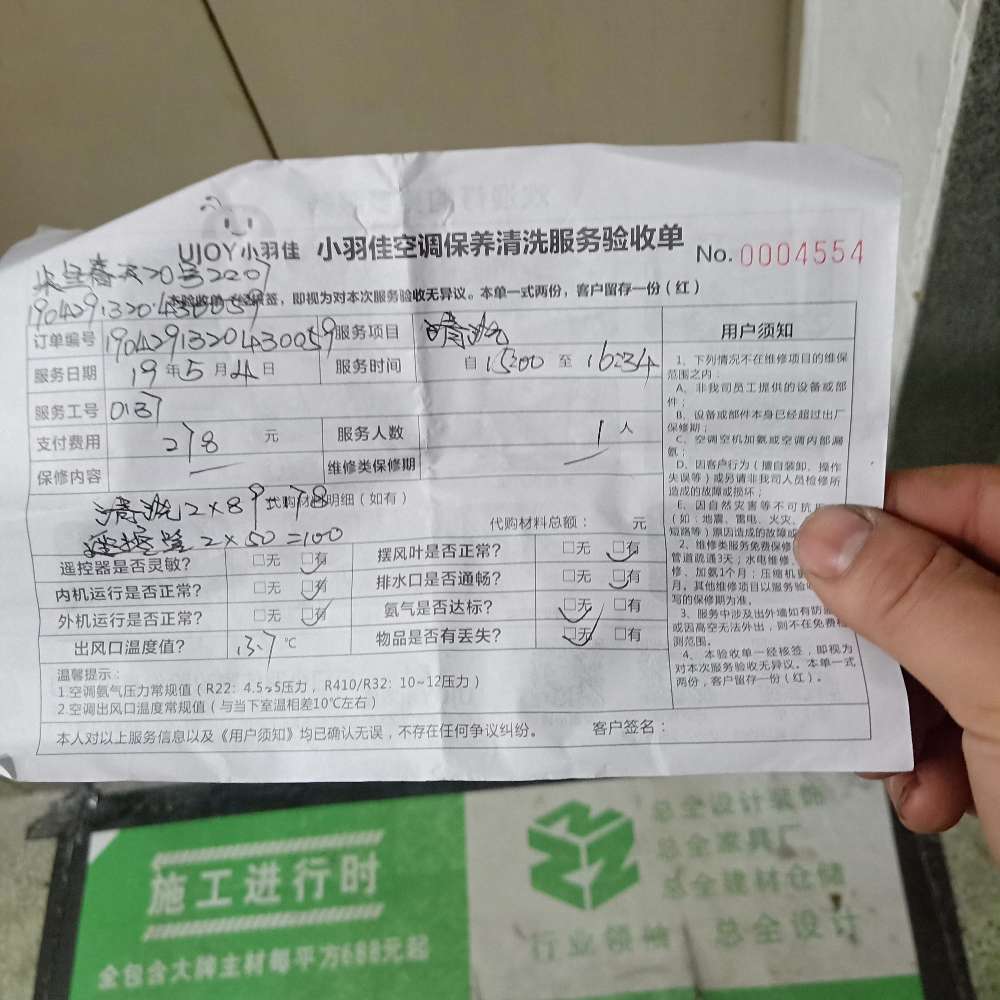 UJOY小羽佳 小羽佳空调保养清洗服务验收单 No.0004554
20号2207
1904291320430059
签,即视为对本次服务验收无异议。本单一式两份,客户留存一份(红)
订单编号 1904291320430059 服务项目 清洗
服务日期 19年5月4日 服务时间 自15:00至16:34
服务工号 0137
支付费用 278元 服务人数 1人
保修内容 — 维修类保修期 —
代购材料明细(如有)
清洗2×89 178
遥控器2×50=100
代购材料总额: 元
遥控器是否灵敏? □无 □有 摆风叶是否正常? □无 □有
内机运行是否正常? □无 □有 排水口是否通畅? □无 □有
外机运行是否正常? □无 □有 氨气是否达标? □无 □有
出风口温度值? 13.7℃ 物品是否有丢失? □无 □有
温馨提示:
1.空调氨气压力常规值(R22:4.5~5压力,R410/R32:10~12压力)
2.空调出风口温度常规值(与当下室温相差10℃左右)
本人对以上服务信息以及《用户须知》均已确认无误,不存在任何争议纠纷。 客户签名:
用户须知
1、下列情况不在维修项目的维保
范围之内:
A、非我司员工提供的设备或部
件;
B、设备或部件本身已经超过出厂
保修期;
C、空调空机加氨或空调内部漏
氨;
D、因客户行为(擅自装卸、操作
失误等)或另请非我司人员检修所
造成的故障或损坏;
E、因自然灾害等不可抗
(如:地震、雷电、火灾、
短路等)原因造成的故障或
2、维修类服务免费保修
管道疏通3天;水电维修、
修、加氨1个月;压缩机
月。其他维修项目以服务验
写的保修期为准。
3、服务中涉及出外墙如有防
或因高空无法外出,则不在免费
测范围。
4、本验收单一经核签,即视为
对本次服务验收无异议。本单一式
两份,客户留存一份(红)。
施工进行时
全包含大牌主材每平方688元起
总全设计装饰
总全家具厂
总全建材仓储
行业领袖 总全设计